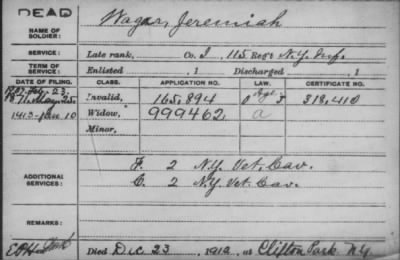 DEAD
NAME OF SOLDIER: Wagar, Jeremiah
SERVICE: Late rank, Co. I, 115 Reg't N.Y. Inf.
TERM OF SERVICE: Enlisted , 1 Discharged , 1
DATE OF FILING. CLASS. APPLICATION NO. LAW. CERTIFICATE NO.
Invalid, 165,894 318,410
1913 - Jan. 10 Widow, 999462 a
Minor,
ADDITIONAL SERVICES:
F. 2 N.Y. Vet. Cav.
C. 2 N.Y. Vet. Cav.
REMARKS:
Died Dec 23, 1912, at Clifton Park N.Y.